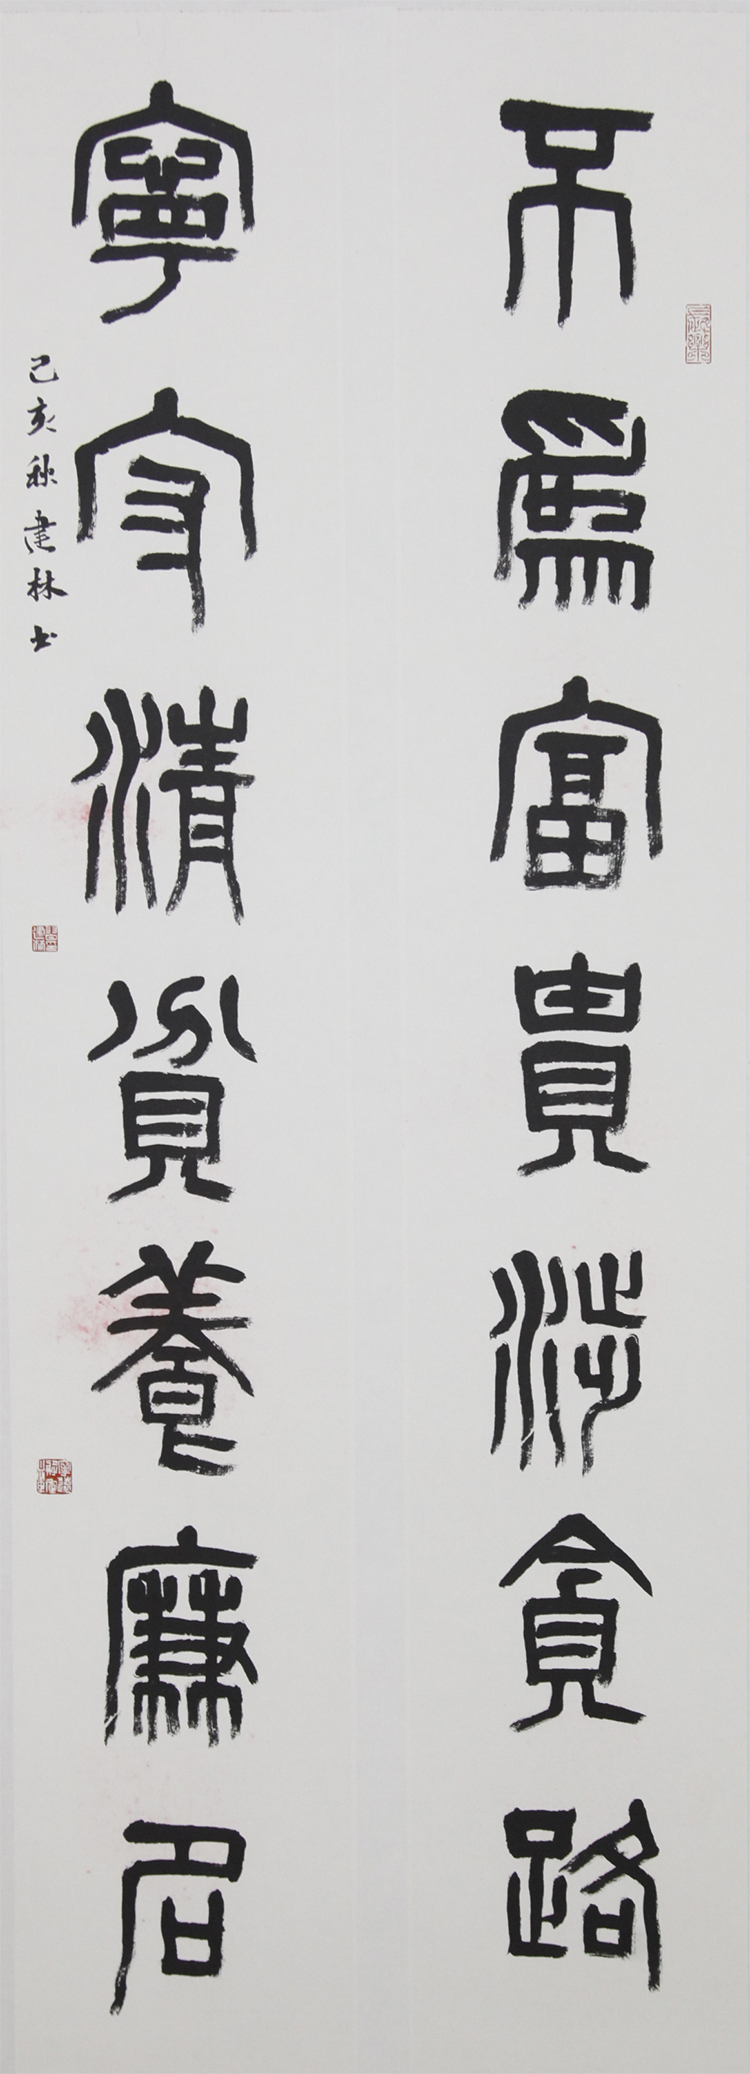 不為富貴涉貪路
寧守清貧養廉名
己亥秋建林书